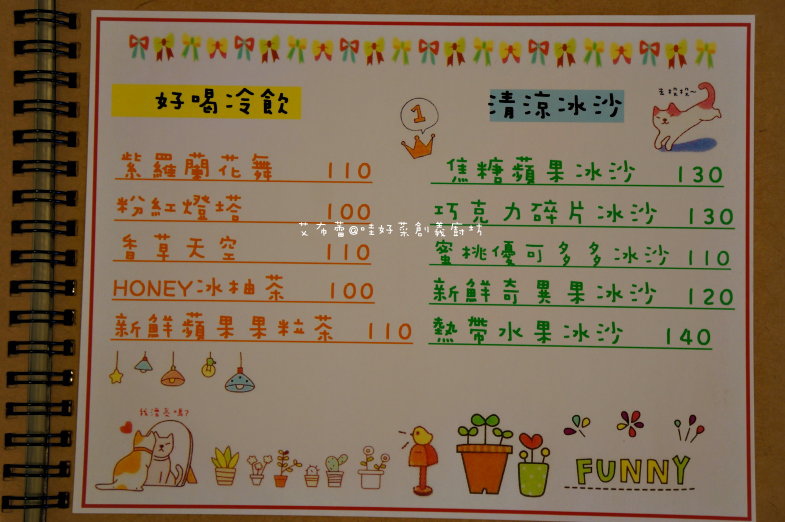 好喝冷飲
紫羅蘭花舞 110
粉紅燈塔 100
香草天空 110
HONEY冰柚茶 100
新鮮蘋果果粒茶 110
1
清涼冰沙
焦糖蘋果冰沙 130
巧克力碎片冰沙 130
蜜桃優可多多冰沙 110
新鮮奇異果冰沙 120
熱帶水果冰沙 140
艾布蕾@哇好菜創義廚坊
我漂亮嗎?
FUNNY